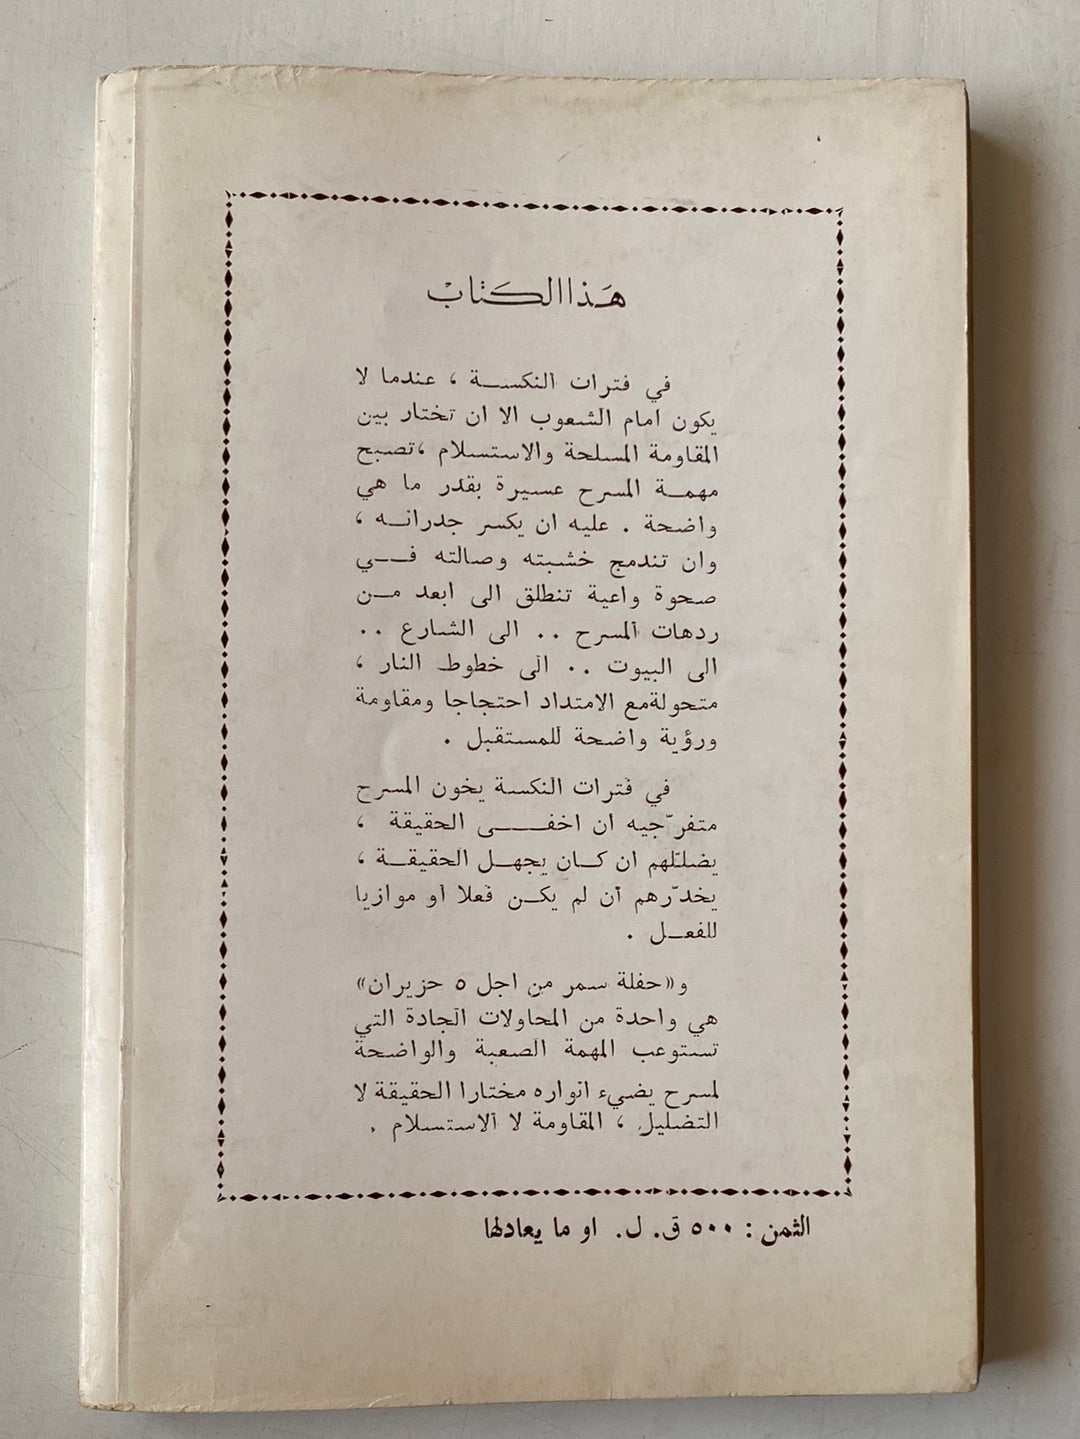 هَذا الكتابْ
في فترات النكســة ، عندما لا
يكون امام الشعوب الا ان تختار بين
المقاومة المسلحة والاستسلام ،تصبح
مهمــة المسرح عسيرة بقدر ما هي
واضحة . عليه ان يكسر جدرانــه ،
وان تندمج خشبته وصالته فــي
صحوة واعية تنطلق الى ابعد مــن
ردهات المسرح .. الى الشارع ..
الى البيوت .. الى خطوط النار ،
متحولةمع الامتداد احتجاجا ومقاومة
ورؤية واضحة للمستقبل .
في فترات النكسة يخون المسرح
متفرّجيه ان اخفــى الحقيقة ،
يضلّلهم ان كــان يجهــل الحقيقــة ،
يخدّرهم أن لم يكــن فعلا أو موازيا
للفعــل .
و«حفلة سمر من اجل ٥ حزيران»
هي واحدة من المحاولات الجادة التي
تستوعب المهمة الصعبة والواضحة
لمسرح يضيء انواره مختارا الحقيقة لا
التضليل ، المقاومة لا الاستسلام .
الثمن : ٥٠٠ ق. ل. او ما يعادلها